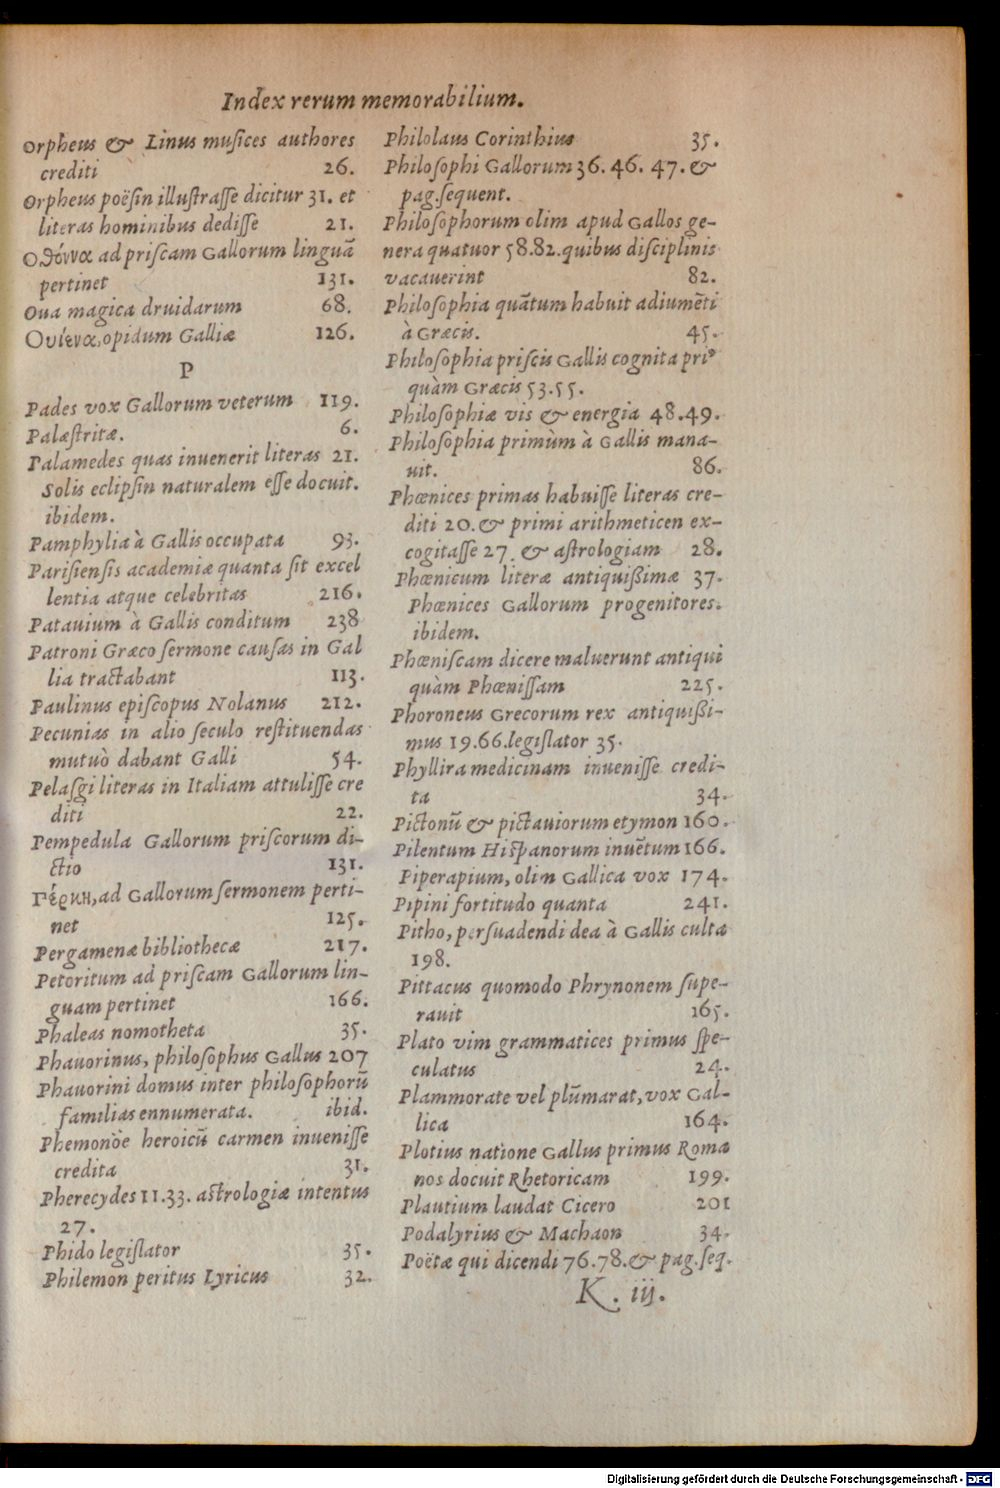 Index rerum memorabilium.
Orpheus & Linus musices authores
crediti 26.
Orpheus poësin illustrasse dicitur 31. et
literas hominibus dedisse 21.
Οθόννα ad priscam Gallorum linguā
pertinet 131.
Oua magica druidarum 68.
Ουίεννα, opidum Galliæ 126.
P
Pades vox Gallorum veterum 119.
Palæstritæ. 6.
Palamedes quas inuenerit literas 21.
Solis eclipsin naturalem esse docuit.
ibidem.
Pamphylia à Gallis occupata 93.
Parisiensis academiæ quanta sit excel
lentia atque celebritas 216.
Patauium à Gallis conditum 238
Patroni Græco sermone causas in Gal
lia tractabant 113.
Paulinus episcopus Nolanus 212.
Pecunias in alio seculo restituendas
mutuò dabant Galli 54.
Pelasgi literas in Italiam attulisse cre
diti 22.
Pempedula Gallorum priscorum di-
ctio 131.
Γέρκη, ad Gallorum sermonem perti-
net 125.
Pergamenæ bibliothecæ 217.
Petoritum ad priscam Gallorum lin-
guam pertinet 166.
Phaleas nomotheta 35.
Phauorinus, philosophus Gallus 207
Phauorini domus inter philosophorū
familias ennumerata. ibid.
Phemonöe heroicū carmen inuenisse
credita 31.
Pherecydes 11.33. astrologiæ intentus
27.
Phido legislator 35.
Philemon peritus Lyricus 32.
Philolaus Corinthius 35.
Philosophi Gallorum 36. 46. 47. &
pag. sequent.
Philosophorum olim apud Gallos ge-
nera quatuor 58.82. quibus disciplinis
vacauerint 82.
Philosophia quātum habuit adiumēti
à Græcis. 45.
Philosophia priscis Gallis cognita pri⁹
quàm Græcis 53.55.
Philosophiæ vis & energia 48.49.
Philosophia primùm à Gallis mana-
uit. 86.
Phœnices primas habuisse literas cre-
diti 20. & primi arithmeticen ex-
cogitasse 27. & astrologiam 28.
Phœnicum literæ antiquißimæ 37.
Phœnices Gallorum progenitores.
ibidem.
Phœniscam dicere maluerunt antiqui
quàm Phœnissam 225.
Phoroneus Grecorum rex antiquißi-
mus 19.66. legislator 35.
Phyllira medicinam inuenisse credi-
ta 34.
Pictonū & pictauiorum etymon 160.
Pilentum Hispanorum inuētum 166.
Piperapium, olim Gallica vox 174.
Pipini fortitudo quanta 241.
Pitho, persuadendi dea à Gallis culta
198.
Pittacus quomodo Phrynonem supe-
rauit 165.
Plato vim grammatices primus spe-
culatus 24.
Plammorate vel plūmarat, vox Gal-
lica 164.
Plotius natione Gallus primus Roma
nos docuit Rhetoricam 199.
Plautium laudat Cicero 201
Podalyrius & Machaon 34.
Poëtæ qui dicendi 76.78. & pag. seq.
K. iij.
Digitalisierung gefördert durch die Deutsche Forschungsgemeinschaft - DFG